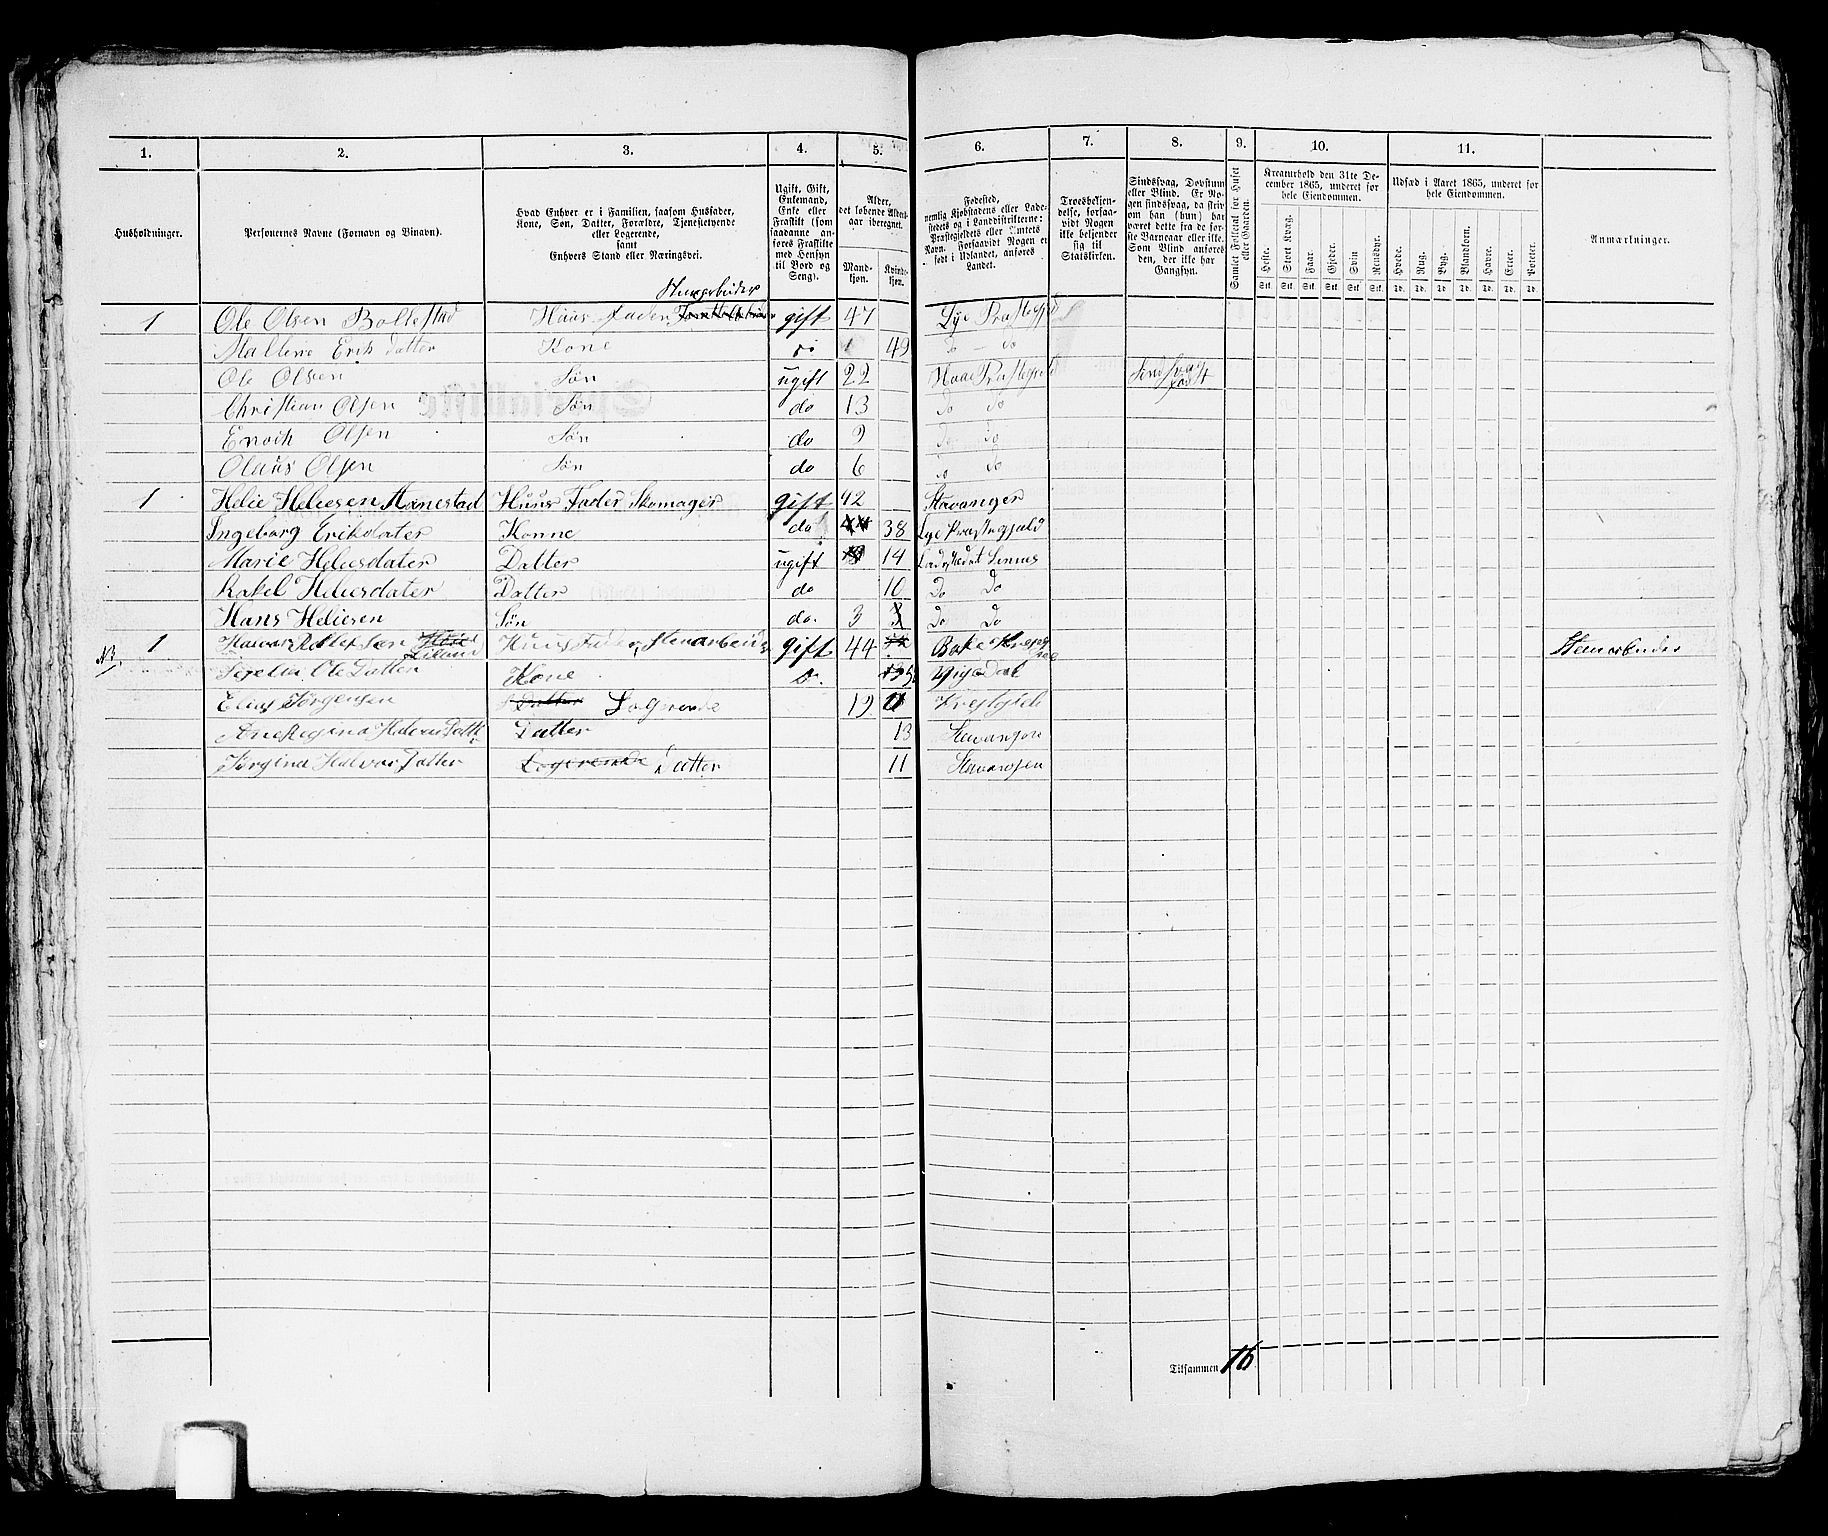 1. 2. 3. 4. 5. 6. 7. 8. 9. 10. 11.
Husholdninger.
Personernes Navne (Fornavn og Vinavn).
Hvad Enhver er i Familien, saasom Husfader, Kone, Søn, Datter, Forældre, Tjenestetyende eller Logerende, samt Enhvers Stand eller Næringsvei.
Ugift, Gift, Enkemand, Enke eller Fraskilt (som saadanne anføres Fraskilte med Hensyn til Bord og Seng).
Alder, det løbende Alders-aar iberegnet.
Mandkjøn. Kvindekjøn.
Fødested, nemlig Kjøbstadens eller Ladestedets og i Landdistrikterne: Præstegjeldets eller Amtets Navn. Forsaavidt Nogen er født i Udlandet, anføres Landet.
Troesbekjendelse, forsaavidt Nogen ikke bekjender sig til Statskirken.
Sindssvag, Døvstum eller Blind. Er Nogen sindssvag, da skrives om han (hun) har været dette fra de første Barneaar eller ikke. Som Blind anføres den, der ikke har Gangsyn.
Samlet Folketal for Huset eller Gaarden.
Kreaturhold den 31te December 1865, underet for hele Eiendommen.
Heste. Stort Kvæg. Faar Gjeder. Svin Rensdyr.
Stk. Stk. Stk. Stk. Stk. Stk.
Udsæd i Aaret 1865, underet for hele Eiendommen.
Hvede. Rug. Byg. Blandkorn. Havre. Erter. Poteter.
Td. Td. Td. Td. Td. Td. Td.
Anmærkninger.
Stenarbeider
1 Ole Olsen Bollestad Huus fader gift 47 Lye Præstegjeld
Mallene Erik datter Kone do 49 do - do
Ole Olsen Søn ugift 22 Haae Præstegjeld Sindsvag
Christian Olsen Søn do 13 do do
Enoch Olsen Søn do 9 do do
Olaus Olsen Søn do 6 do do
1 Helie Heliesen Aanestad Huus Fader Skomager gift 42 Stavanger
Ingeborg Erikdater Konne do 38 Lye Præstegjeld
Marie Heliesdater Datter ugift 14 Ladestædet Sennes
Rakel Heliesdater Datter do 10 Do Do
Hans Heliesen Søn do. 3 Do Do
1 Huus Fader Stenarbeider gift 44 Stenarbeider
Nb. Ole Datter Kone D.
Elias Jørgensen Logerende 19
Datter 13 Stavanger
Jørgine Halvor Datter Datter 11 Stavanger
Tilsammen 16